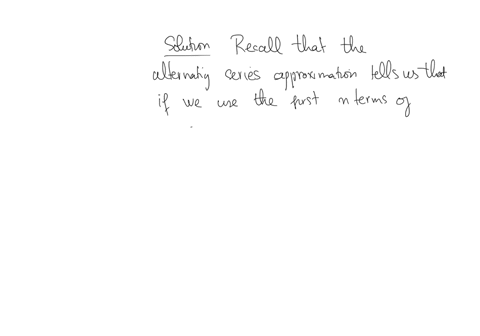 Solution Recall that the
alternatig series approximation tells us that
if we use the first n terms of